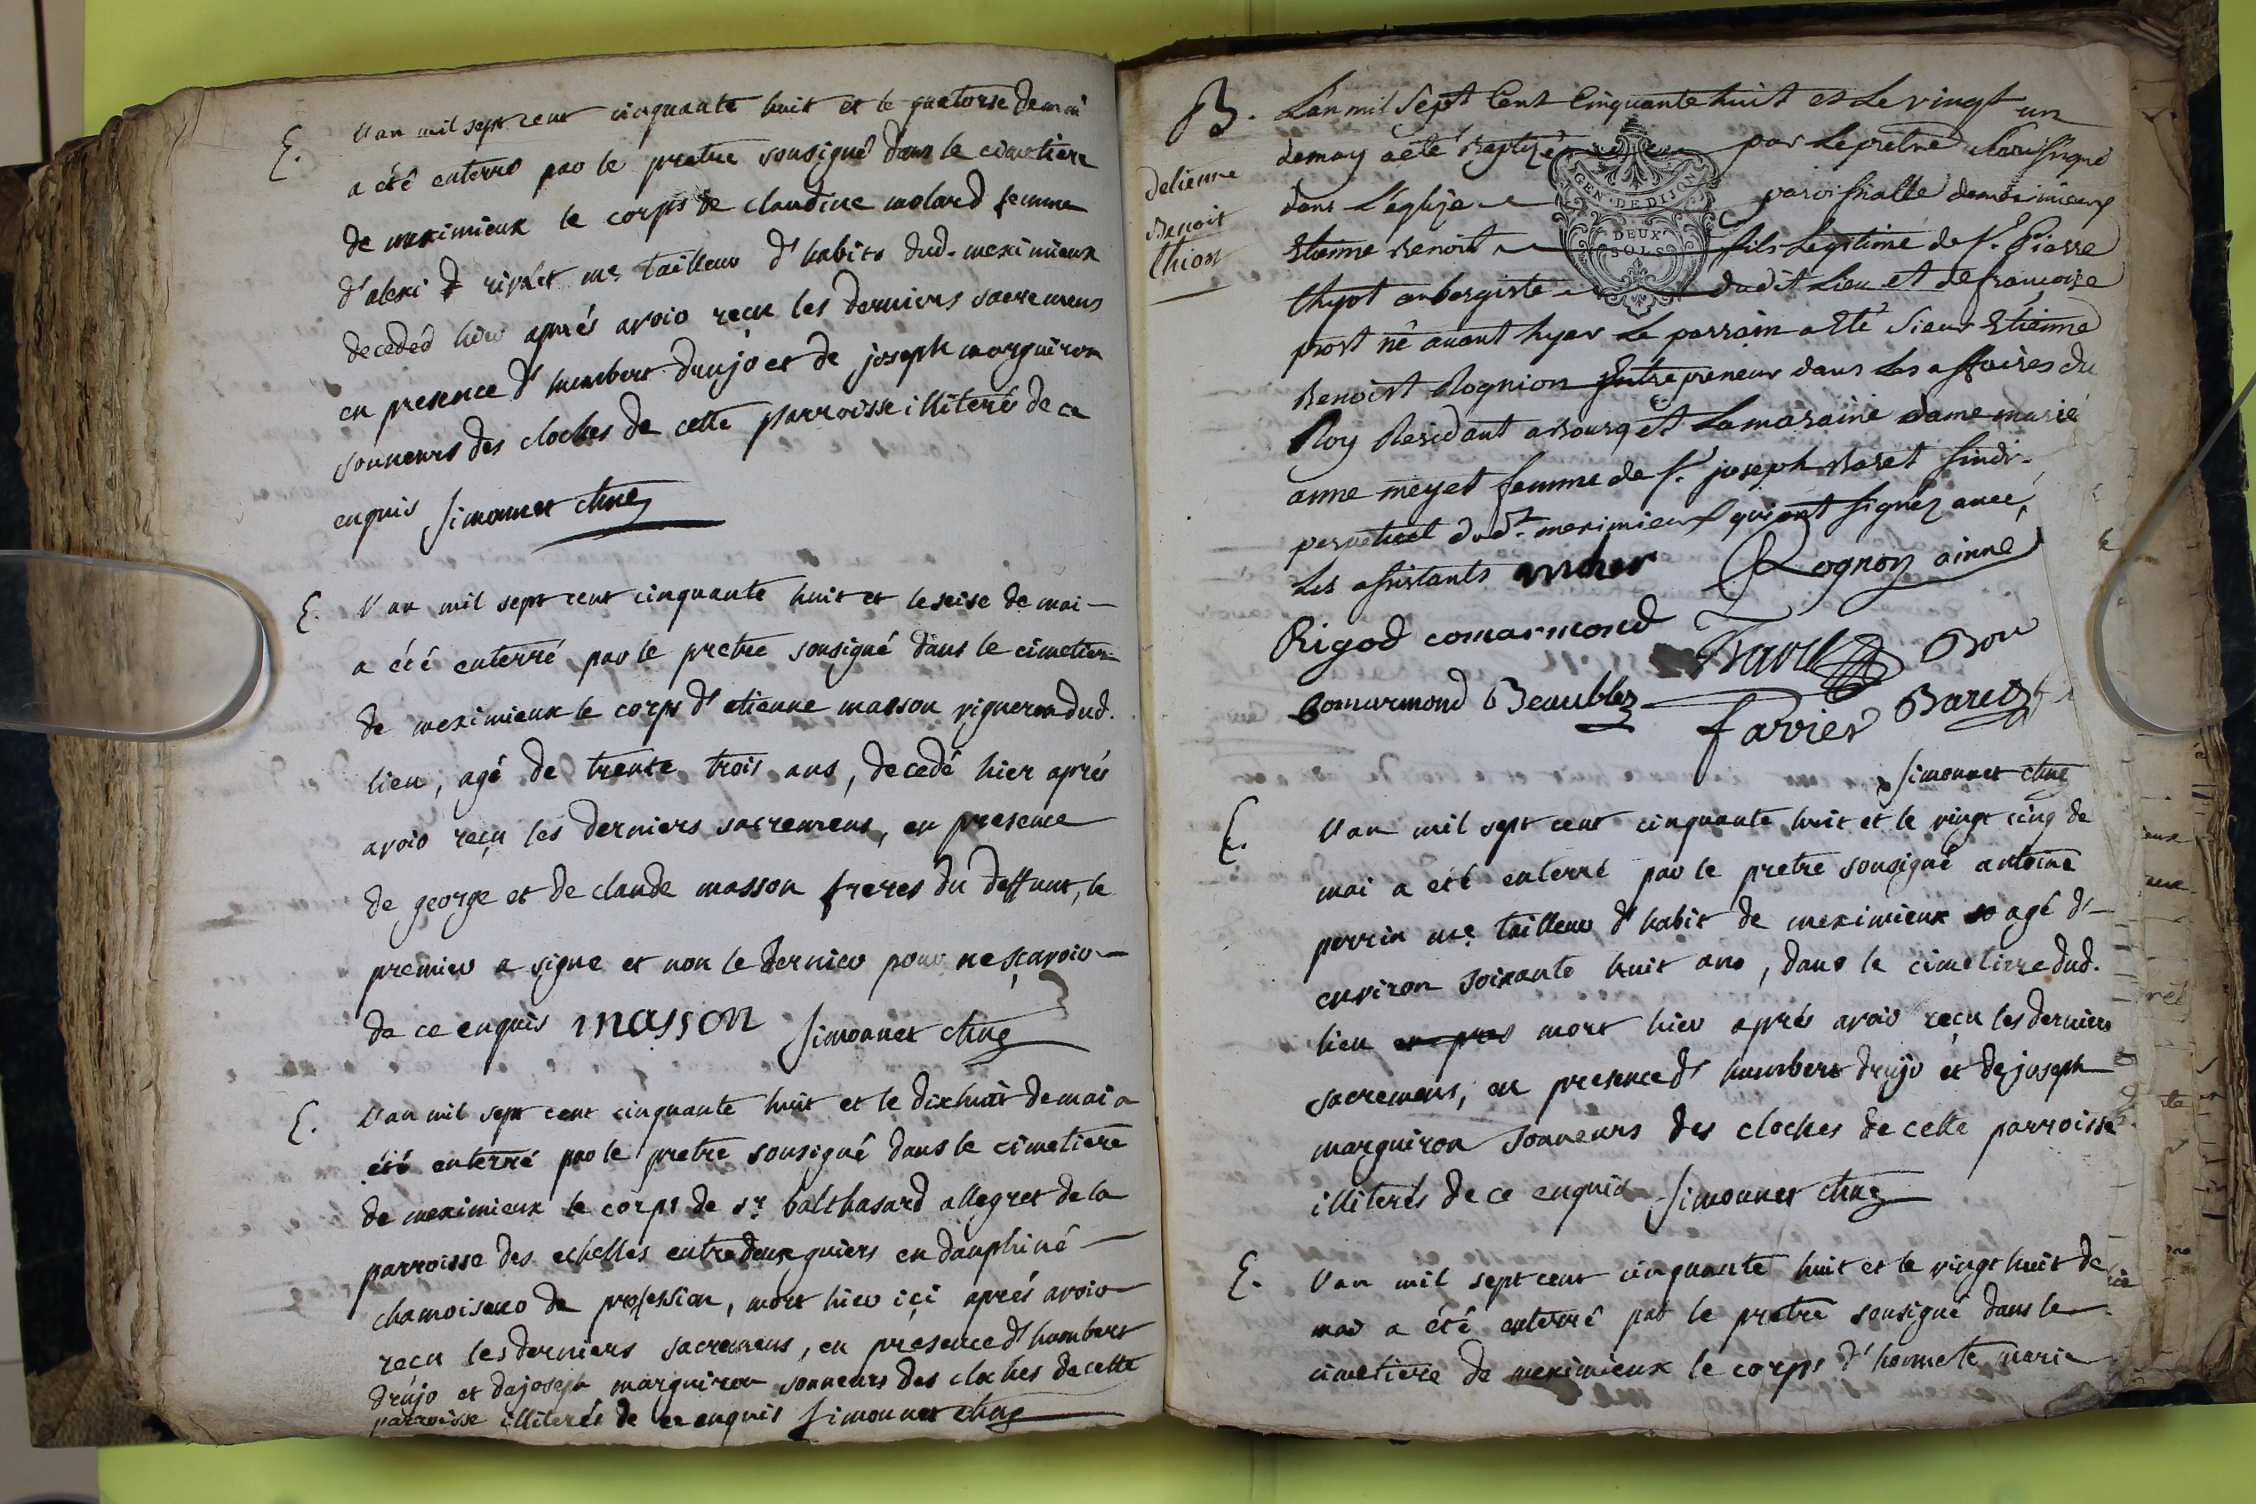 E. L'an mil sept cent cinquante huit et le quatorse de mai
a été enterré par le pretre sousigné dans le cimetiere
de meximieux le corps de claudine molard femme
d'alexi rivet me tailleur d'habits dud. meximieux
decedéé hier aprés avoir reçu les derniers sacremens
en presence d'humbert drujo et de joseph marguiron
sonneurs des cloches de cette parroisse illiterés de ce
enquis simonnet
E. L'an mil sept cent cinquante huit et le seise de mai
a été enterré par le pretre sousigné dans le cimetiere
de meximieux le corps d'etienne masson vigneron dud.
lieu, agé de trente trois ans, decedé hier aprés
avoir reçu les derniers sacremens, en presence
de george et de claude masson freres du deffunt, le
premier a signé et non le dernier pour ne sçavoir
de ce enquis masson simonnet
E. L'an mil sept cent cinquante huit et le dixhuit de mai a
été enterré par le pretre sousigné dans le cimetiere
de meximieux le corps de sr. balthasard allegret de la
parroisse des echelles entredeuxguiers en dauphiné
chamoiseur de profession, mort hier içi aprés avoir
reçu les derniers sacremens, en presence d'humbert
drujo et de joseph marguiron sonneurs des cloches de cette
parroisse illiterés de ce enquis simonnet
B. L'an mil sept Cent Cinquante huit et Le vingt un
demay a été Baptizé par Le prêtre soussigné
dans L'eglize paroissialle demeximieux
Etienne Benoit fils Legitime de sr. Pierre
thyot aubergiste dudit Lieu et defrancoize
prost né avant hyer Le parrain a Eté Sieur Etienne
Benoist Rognion Entrepreneur dans Les affaires du
Roy Residant a Bourg et La maraine dame marie
anne meyet femme de sr. joseph Baret sindic
perpetuel dudt. meximieux qui ont signéz avec
Les assistants Rognon ainné
Rigod comarmond Bon
Comarmond Beaublez Baret
farrier
simonnet
delienne
Benoit
thion
GEN. DE DIJON
DEUX
SOLS
E. L'an mil sept cent cinquante huit et le vingt cinq de
mai a été enterré par le pretre sousigné antoine
perrin me. tailleur d'habit de meximieux agé d'
environ soixante huit ans, dans le cimetiere dud.
lieu mort hier aprés avoir reçu les derniers
sacremens, en presence d'humbert drujo et de joseph
marguiron sonneurs des cloches de cette parroisse
illiterés de ce enquis simonnet
E. L'an mil sept cent cinquante huit et le vingt huit de
mai a été enterré par le pretre sousigné dans le
cimetiere de meximieux le corps d'honnete marie